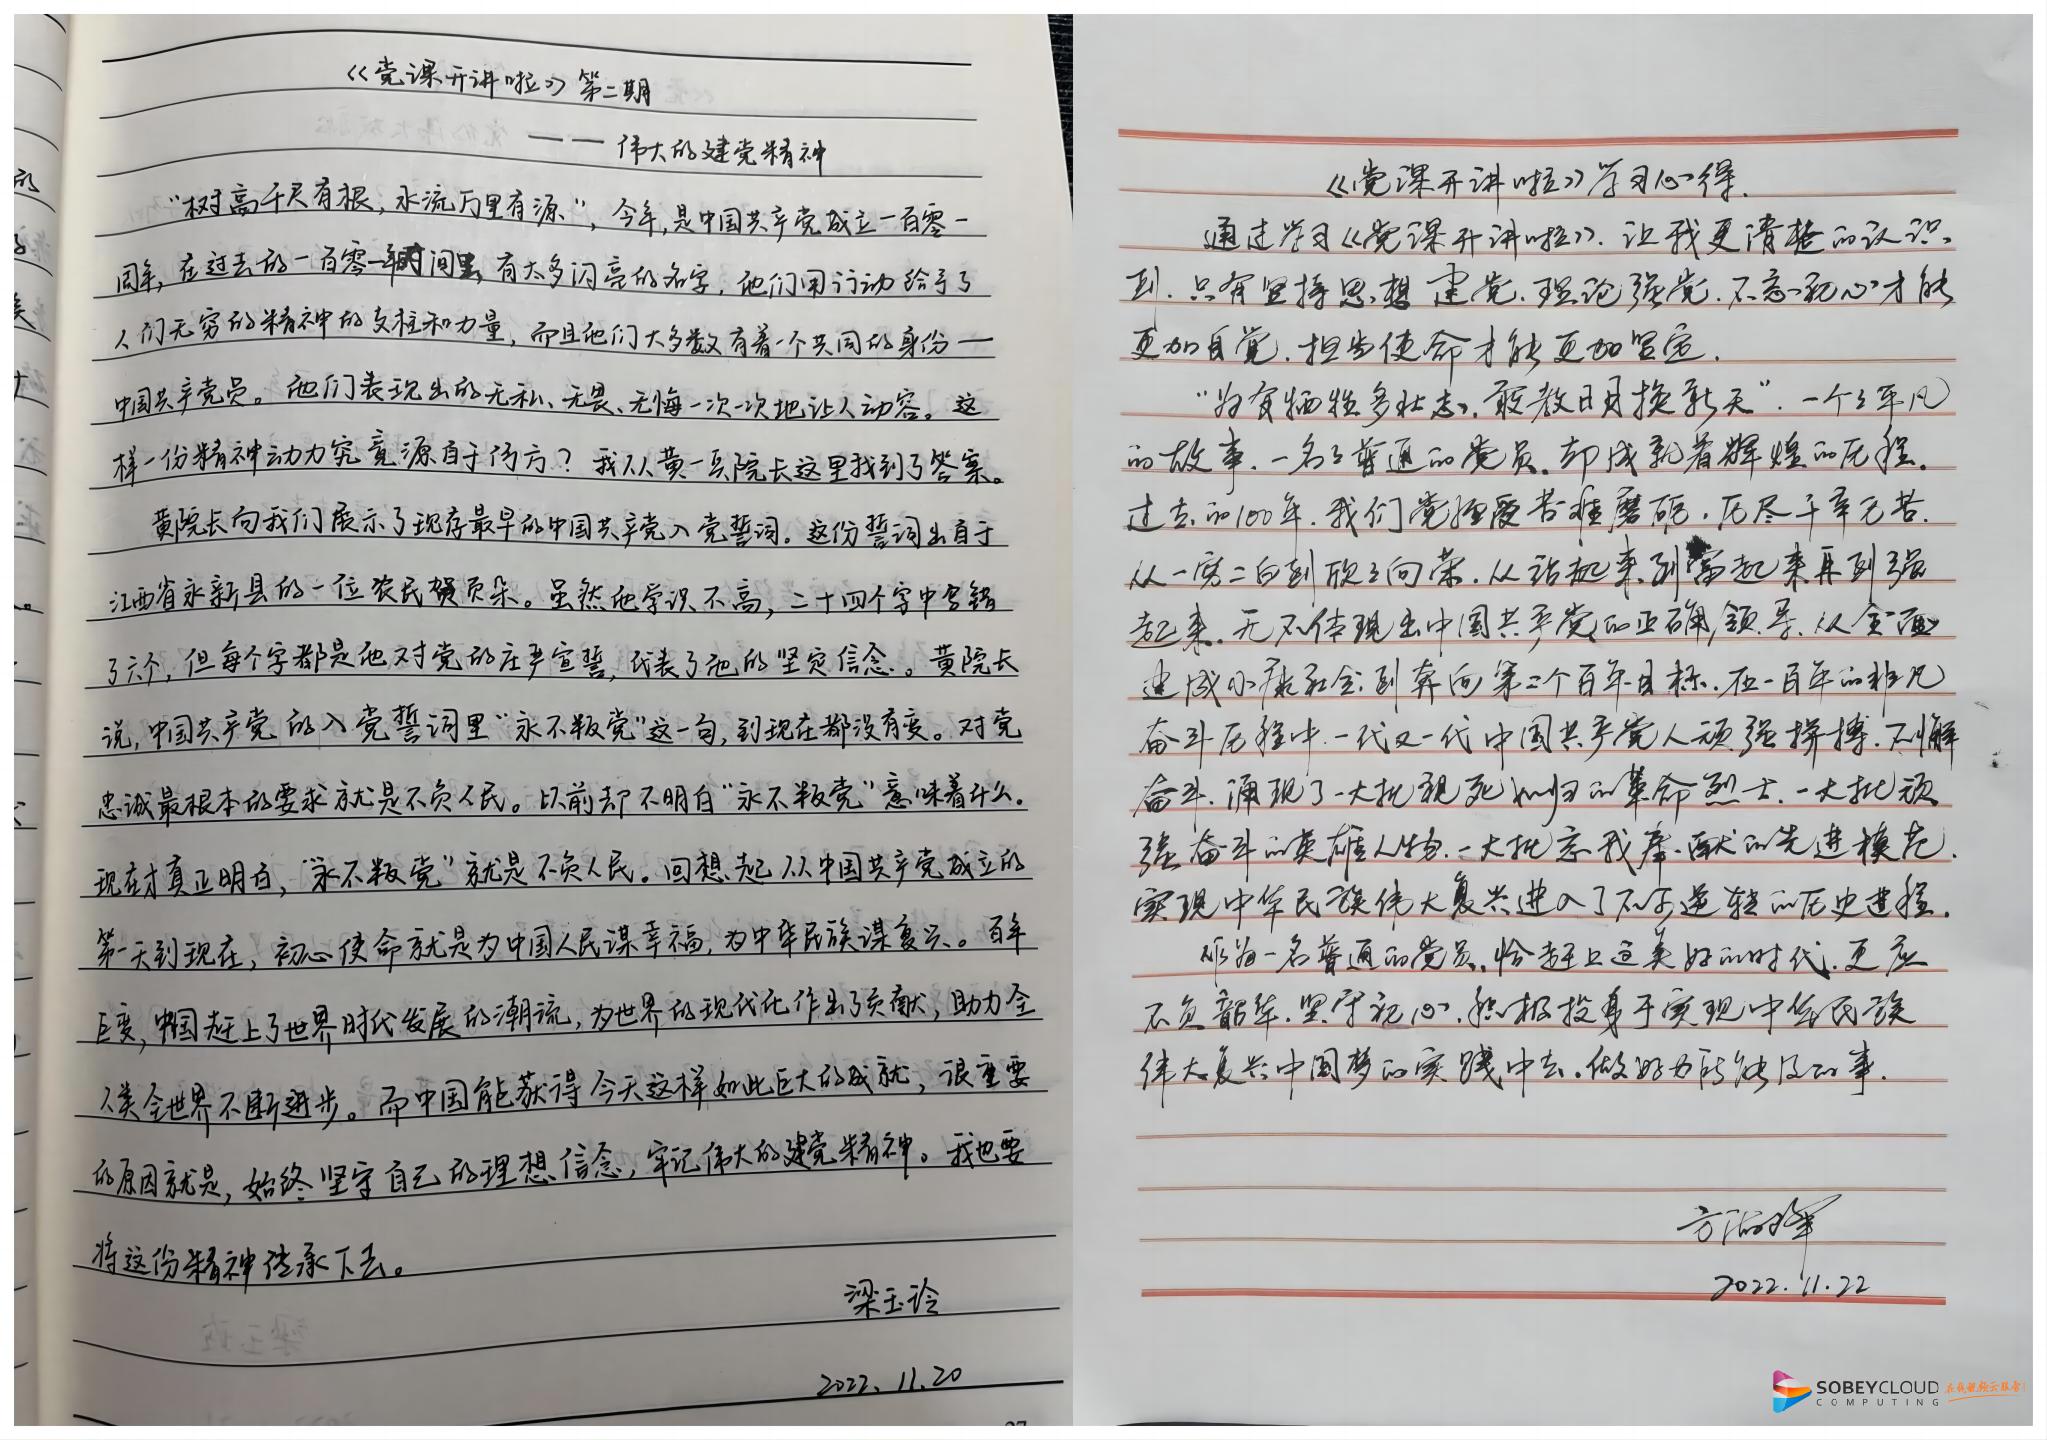 《党课开讲啦》第二期
—— 伟大的建党精神
"树高千尺有根，水流万里有源"，今年，是中国共产党成立一百零一
周年，在过去的一百零一年时间里，有太多闪亮的名字，他们用行动给予了
人们无穷的精神的支柱和力量，而且他们大多数有着一个共同的身份—
中国共产党员。他们表现出的无私、无畏、无悔一次一次地让人动容。这
样一份精神动力究竟源自于何方？我从黄一兵院长这里找到了答案。
黄院长向我们展示了现存最早的中国共产党入党誓词。这份誓词出自于
江西省永新县的一位农民贺页朵。虽然他学识不高，二十四个字中写错
了六个，但每个字都是他对党的庄严宣誓，代表了他的坚定信念。黄院长
说，中国共产党的入党誓词里"永不叛党"这一句，到现在都没有变。对党
忠诚最根本的要求就是不负人民。以前却不明白"永不叛党"意味着什么。
现在才真正明白，"永不叛党"就是不负人民。回想起从中国共产党成立的
第一天到现在，初心使命就是为中国人民谋幸福，为中华民族谋复兴。百年
巨变，中国赶上了世界时代发展的潮流，为世界的现代化作出了贡献，助力全
人类全世界不断进步。而中国能获得今天这样如此巨大的成就，很重要
的原因就是，始终坚守自己的理想信念，牢记伟大的建党精神。我也要
将这份精神传承下去。
梁玉玲
2022.11.20
《党课开讲啦》学习心得.
通过学习《党课开讲啦》.让我更清楚的认识
到.只有坚持思想建党.理论强党.不忘初心才能
更加自觉.担当使命才能更加坚定.
"为有牺牲多壮志.敢教日月换新天".一个々平凡
的故事.一名々普通的党员.却成就着辉煌的历程.
过去的100年.我们党经受苦难磨砺.历尽千辛万苦.
从一穷二白到欣々向荣.从站起来到富起来再到强
起来.无不体现出中国共产党的正确领导.从全面
建成小康社会到奔向第二个百年目标.在一百年的非凡
奋斗历程中.一代又一代中国共产党人顽强拼搏.不懈
奋斗.涌现了一大批视死如归的革命烈士.一大批顽
强奋斗的英雄人物.一大批忘我奉献的先进模范.
实现中华民族伟大复兴进入了不可逆转的历史进程.
作为一名普通的党员.恰赶上这美好的时代.更应
不负韶华.坚守初心.积极投身于实现中华民族
伟大复兴中国梦的实践中去.做好力所能及的事.
2022.11.22
SOBEYCLOUD 在线视频云服务！
COMPUTING